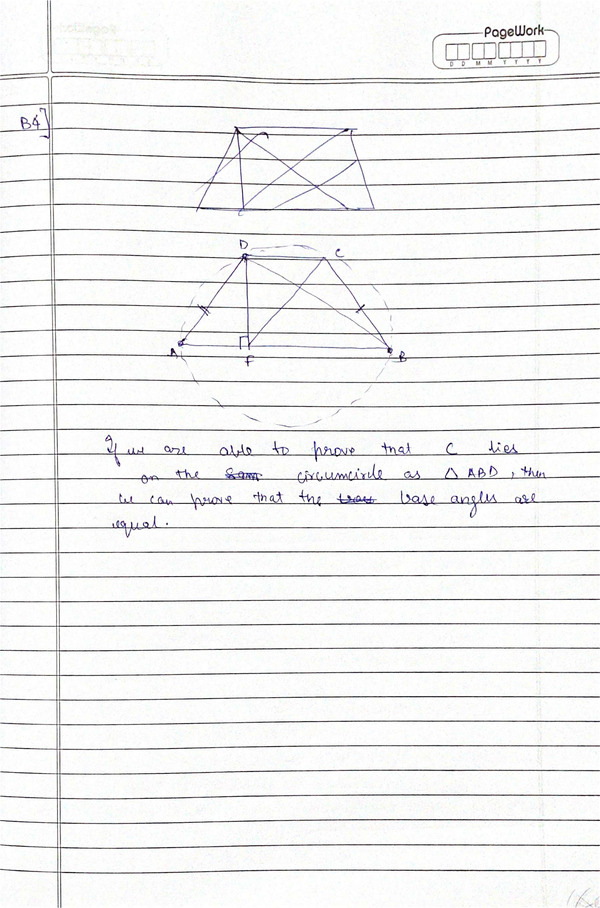 PageWork
D D M M Y Y Y Y
B4]
D
C
A
F
B
If we are able to prove that C lies
on the circumcircle as △ ABD, then
we can prove that the base angles are
equal.